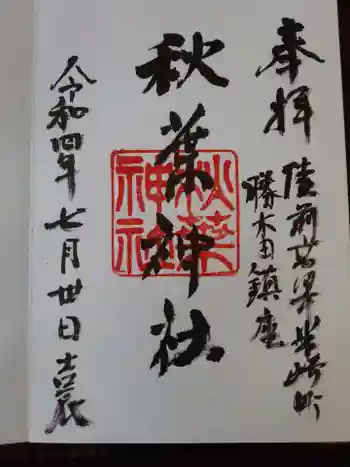 奉拝
陸前 米崎町
勝木田鎮座
秋葉神社
秋葉
神社
令和四年七月廿日吉辰